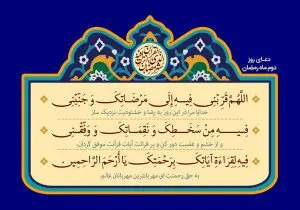 دعـای روز
دوم ماه رمضان
اللَّهُمَّ قَرِّبْنِي فِيهِ إِلَى مَرْضَاتِكَ وَ جَنِّبْنِي
خدایا مرا در این روز به رضا و خشنودیت نزدیک ساز
فِيهِ مِنْ سَخَطِكَ وَ نَقِمَاتِكَ وَ وَفِّقْنِي
و از خشم و غضبت دور کن و بر قرائت آیات قرآنت موفق گردان،
فِيهِ لِقِرَاءَةِ آيَاتِكَ بِرَحْمَتِكَ يَا أَرْحَمَ الرَّاحِمِينَ
به حق رحمتت ای مهربانترین مهربانان عالم.